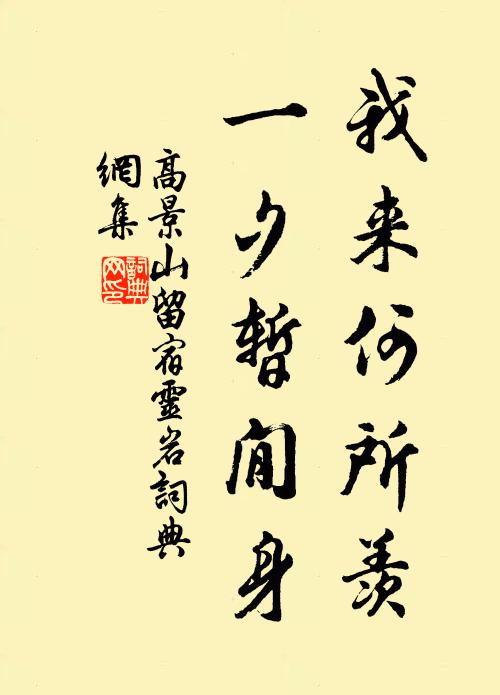 我来何所羨
一夕暫閒身
高景山留宿靈岩詞典
網集
詞典網印